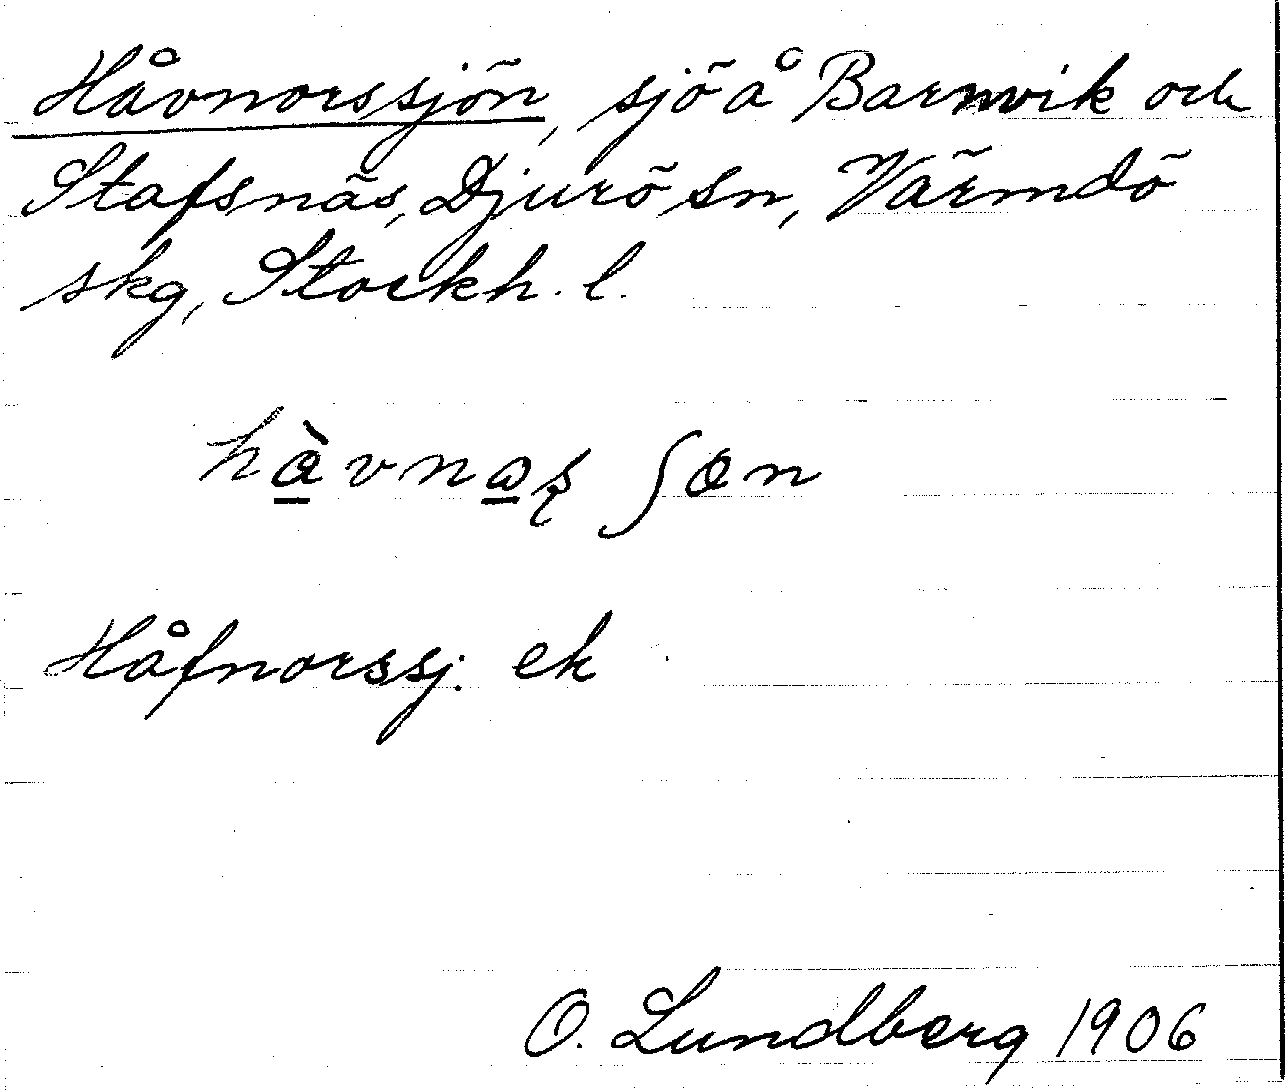 Håvnorssjön, sjö å Barnvik och
Stafsnäs, Djurö sn, Värmdö
skg, Stockh. l.
hàvnaʂ ʃøn
Håfnorssj. ek
O. Lundberg 1906